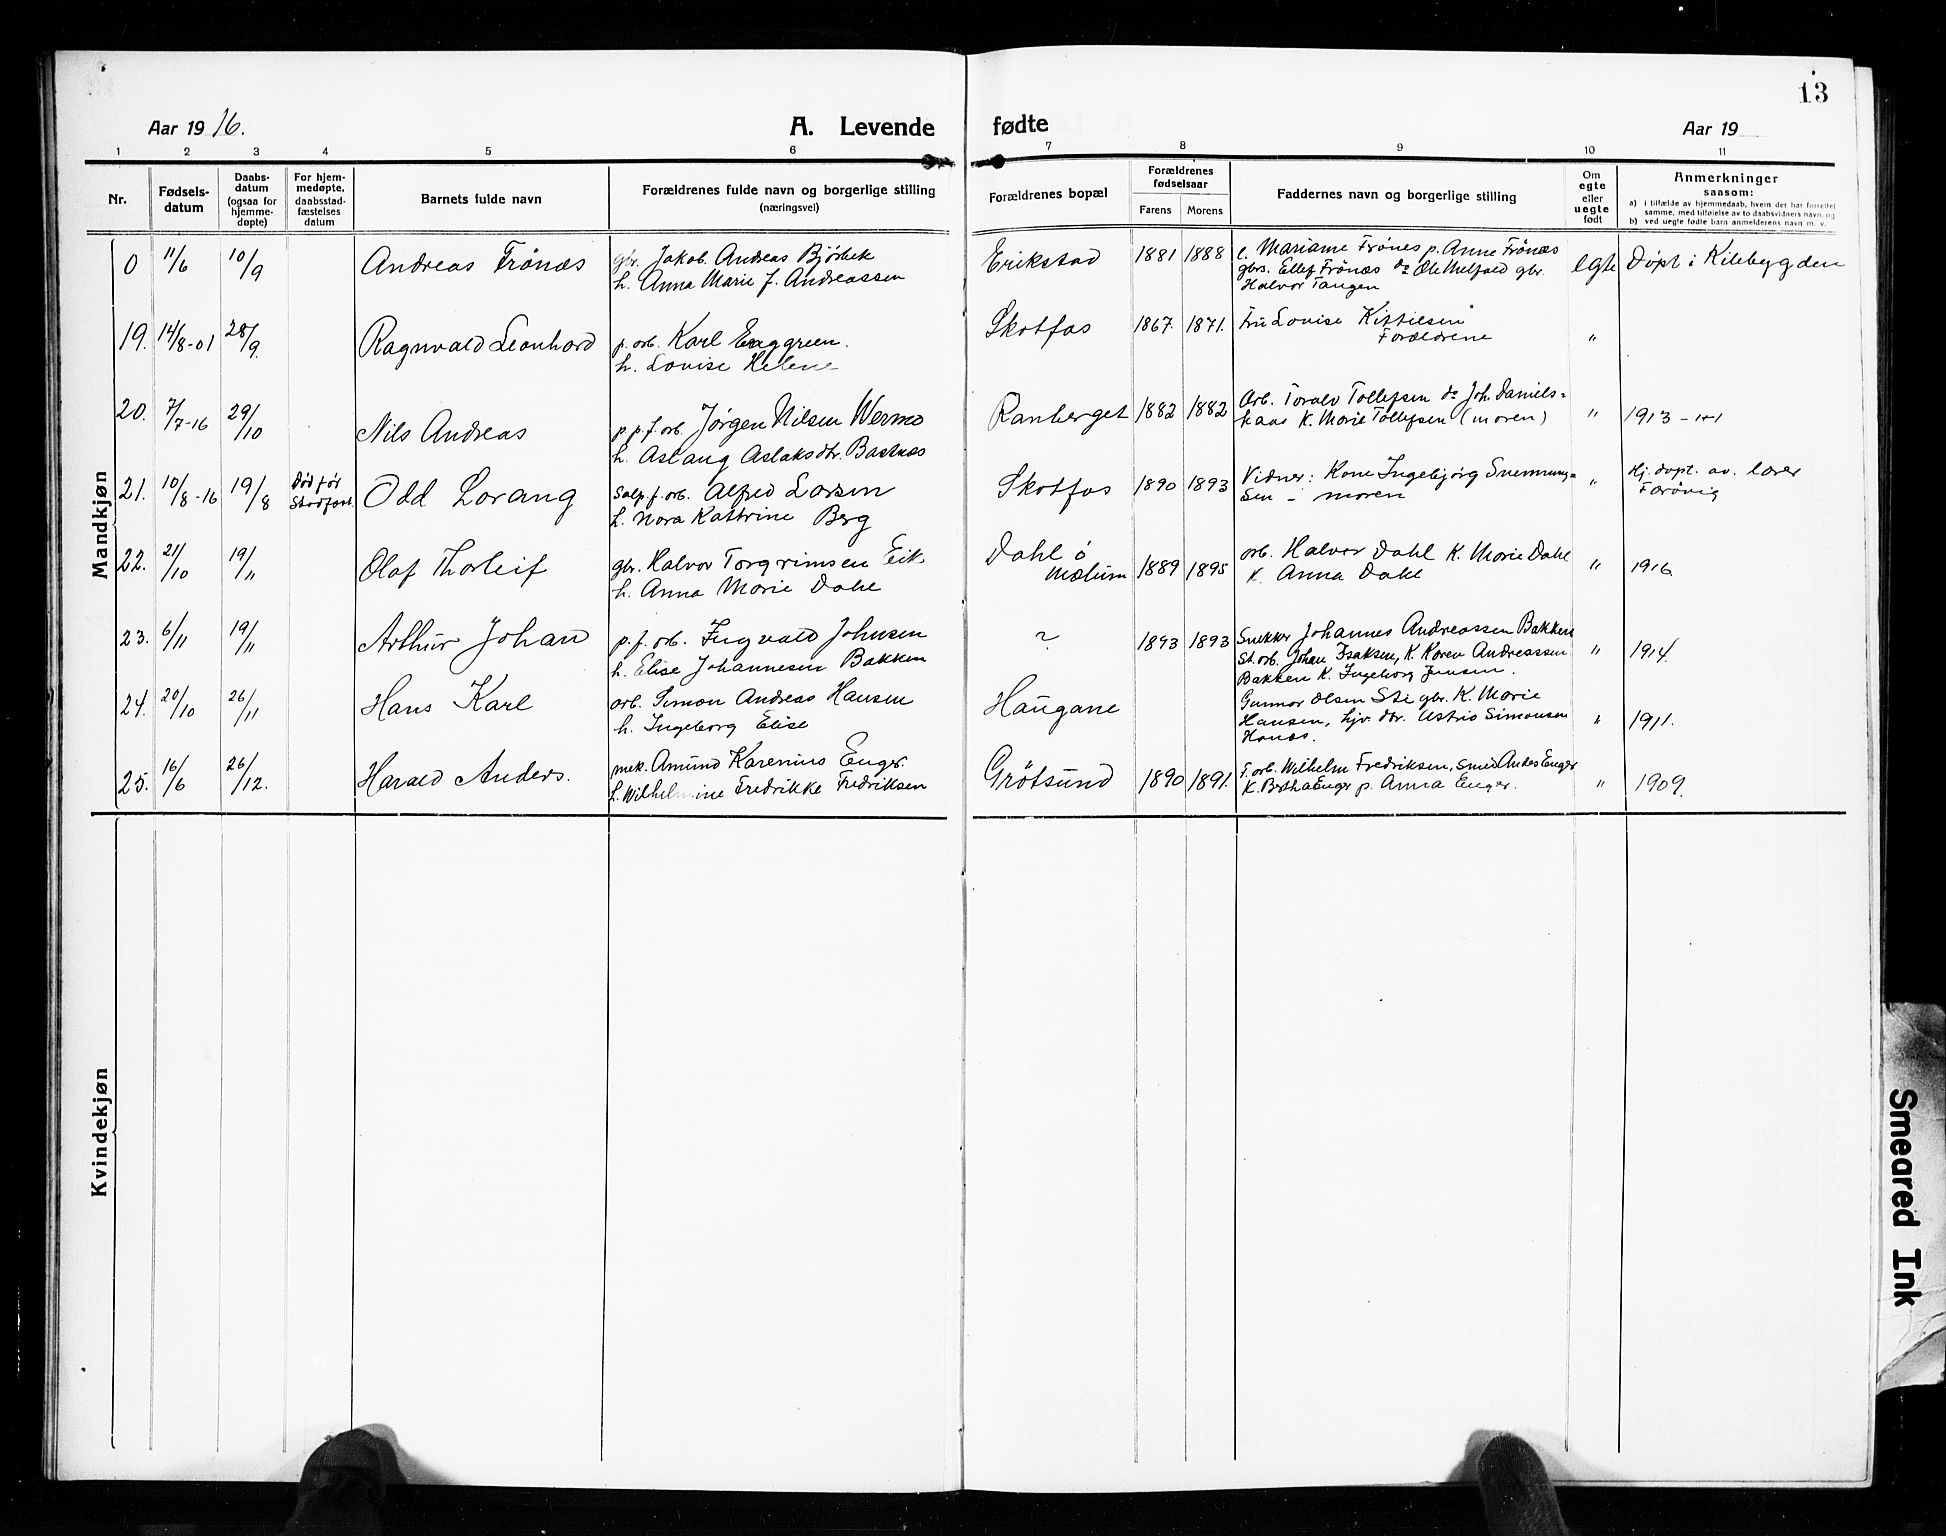 13
Aar 1916.
A. Levende
fødte
Aar 19
1 2 3 4 5 6 7 8 9 10 11
Nr.
Fødsels-
datum
Daabs-
datum
(ogsaa for
hjemme-
døpte)
For hjem-
medøpte,
daabsstad-
fæstelses
datum
Barnets fulde navn
Forældrenes fulde navn og borgerlige stilling
(næringsvei)
Forældrenes bopæl
Forældrenes
fødselsaar
Farens Morens
Faddernes navn og borgerlige stilling
Om
egte
eller
uegte
født
Anmerkninger
saasom:
a) i tilfælde av hjemmedaab, hvem der har forrettet
samme, med tilføielse av to daabsvidners navn, og
b) ved uegte fødte barn anmelderens navn m. v.
Mandkjøn
0 11/6 10/9 Andreas Frönæs
gbr. Jakob Andreas Bjørbek
h. Anna Marie J. Andreassen
Erikstad 1881 1888
e. Mariane Frönes p. Anne Frönæs
gbrs. Ellef Frönæs do Ole Melfald gbr.
Halvor Tangen
Egte Döpt i Kilebygden
19. 14/8-01 28/9. Ragnvald Leonhard
p. arb. Karl Enggreen.
h. Lovise Helene
Skotfos 1867. 1871.
Fru Lovise Kittilsen
Forældrene
"
20. 7/7-16 29/10 Nils Andreas
p.p.f. arb. Jørgen Nilsen Wermo
h. Aslaug Aslaksdtr. Bastnæs
Ranberget 1882 1882
Arb. Toralv Tollefsen do Joh. Daniels=
kaas K. Marie Tollefsen (moren)
" 1913
21. 10/8-16 19/8
Död för
Stadfæst.
Odd Lorang
Salp. f. arb. Alfred Larsen
h. Nora Kathrine Berg
Skotfos 1890 1893
Vidner: Kone Ingebjørg Svennung=
sen - moren
"
Hj. döpt. av. lærer
Farövig
22. 21/10 19/11 Olaf Thorleif
gbr. Halvor Torgrimsen Eik
h. Anna Marie Dahl
Dahl ö
Mælum
1889 1895
arb. Halvor Dahl K. Marie Dahl
K. Anna Dahl
" 1916
23. 6/11 19/11 Arthur Johan
p. f. arb. Ingvald Johnsen
h. Elise Johannesen Bakken
? 1893 1893
Snekker Johannes Andreassen Bakken
St. arb. Johan Isaksen, K. Karen Andreassen
Bakken K. Ingeborg Jensen.
" 1914.
24. 20/10 26/11 Hans Karl
arb. Simon Andreas Hansen
h. Ingeborg Elise
Haugane
Gunnar Olsen Sti gbr. K. Marie
Hansen, hjv. dtr. Astrid Simonsen
Hanæs.
" 1911.
25. 16/6 26/12. Harald Anders.
mek. Amund Karenius Enger.
h. Wilhelmine Fredrikke Fredriksen
Grötsund 1890 1891.
F. arb. Wilhelm Fredriksen, smed Andes Enger
K. Bertha Enger p. Anna Enger.
" 1909.
Kvindekjøn
Smeared Ink